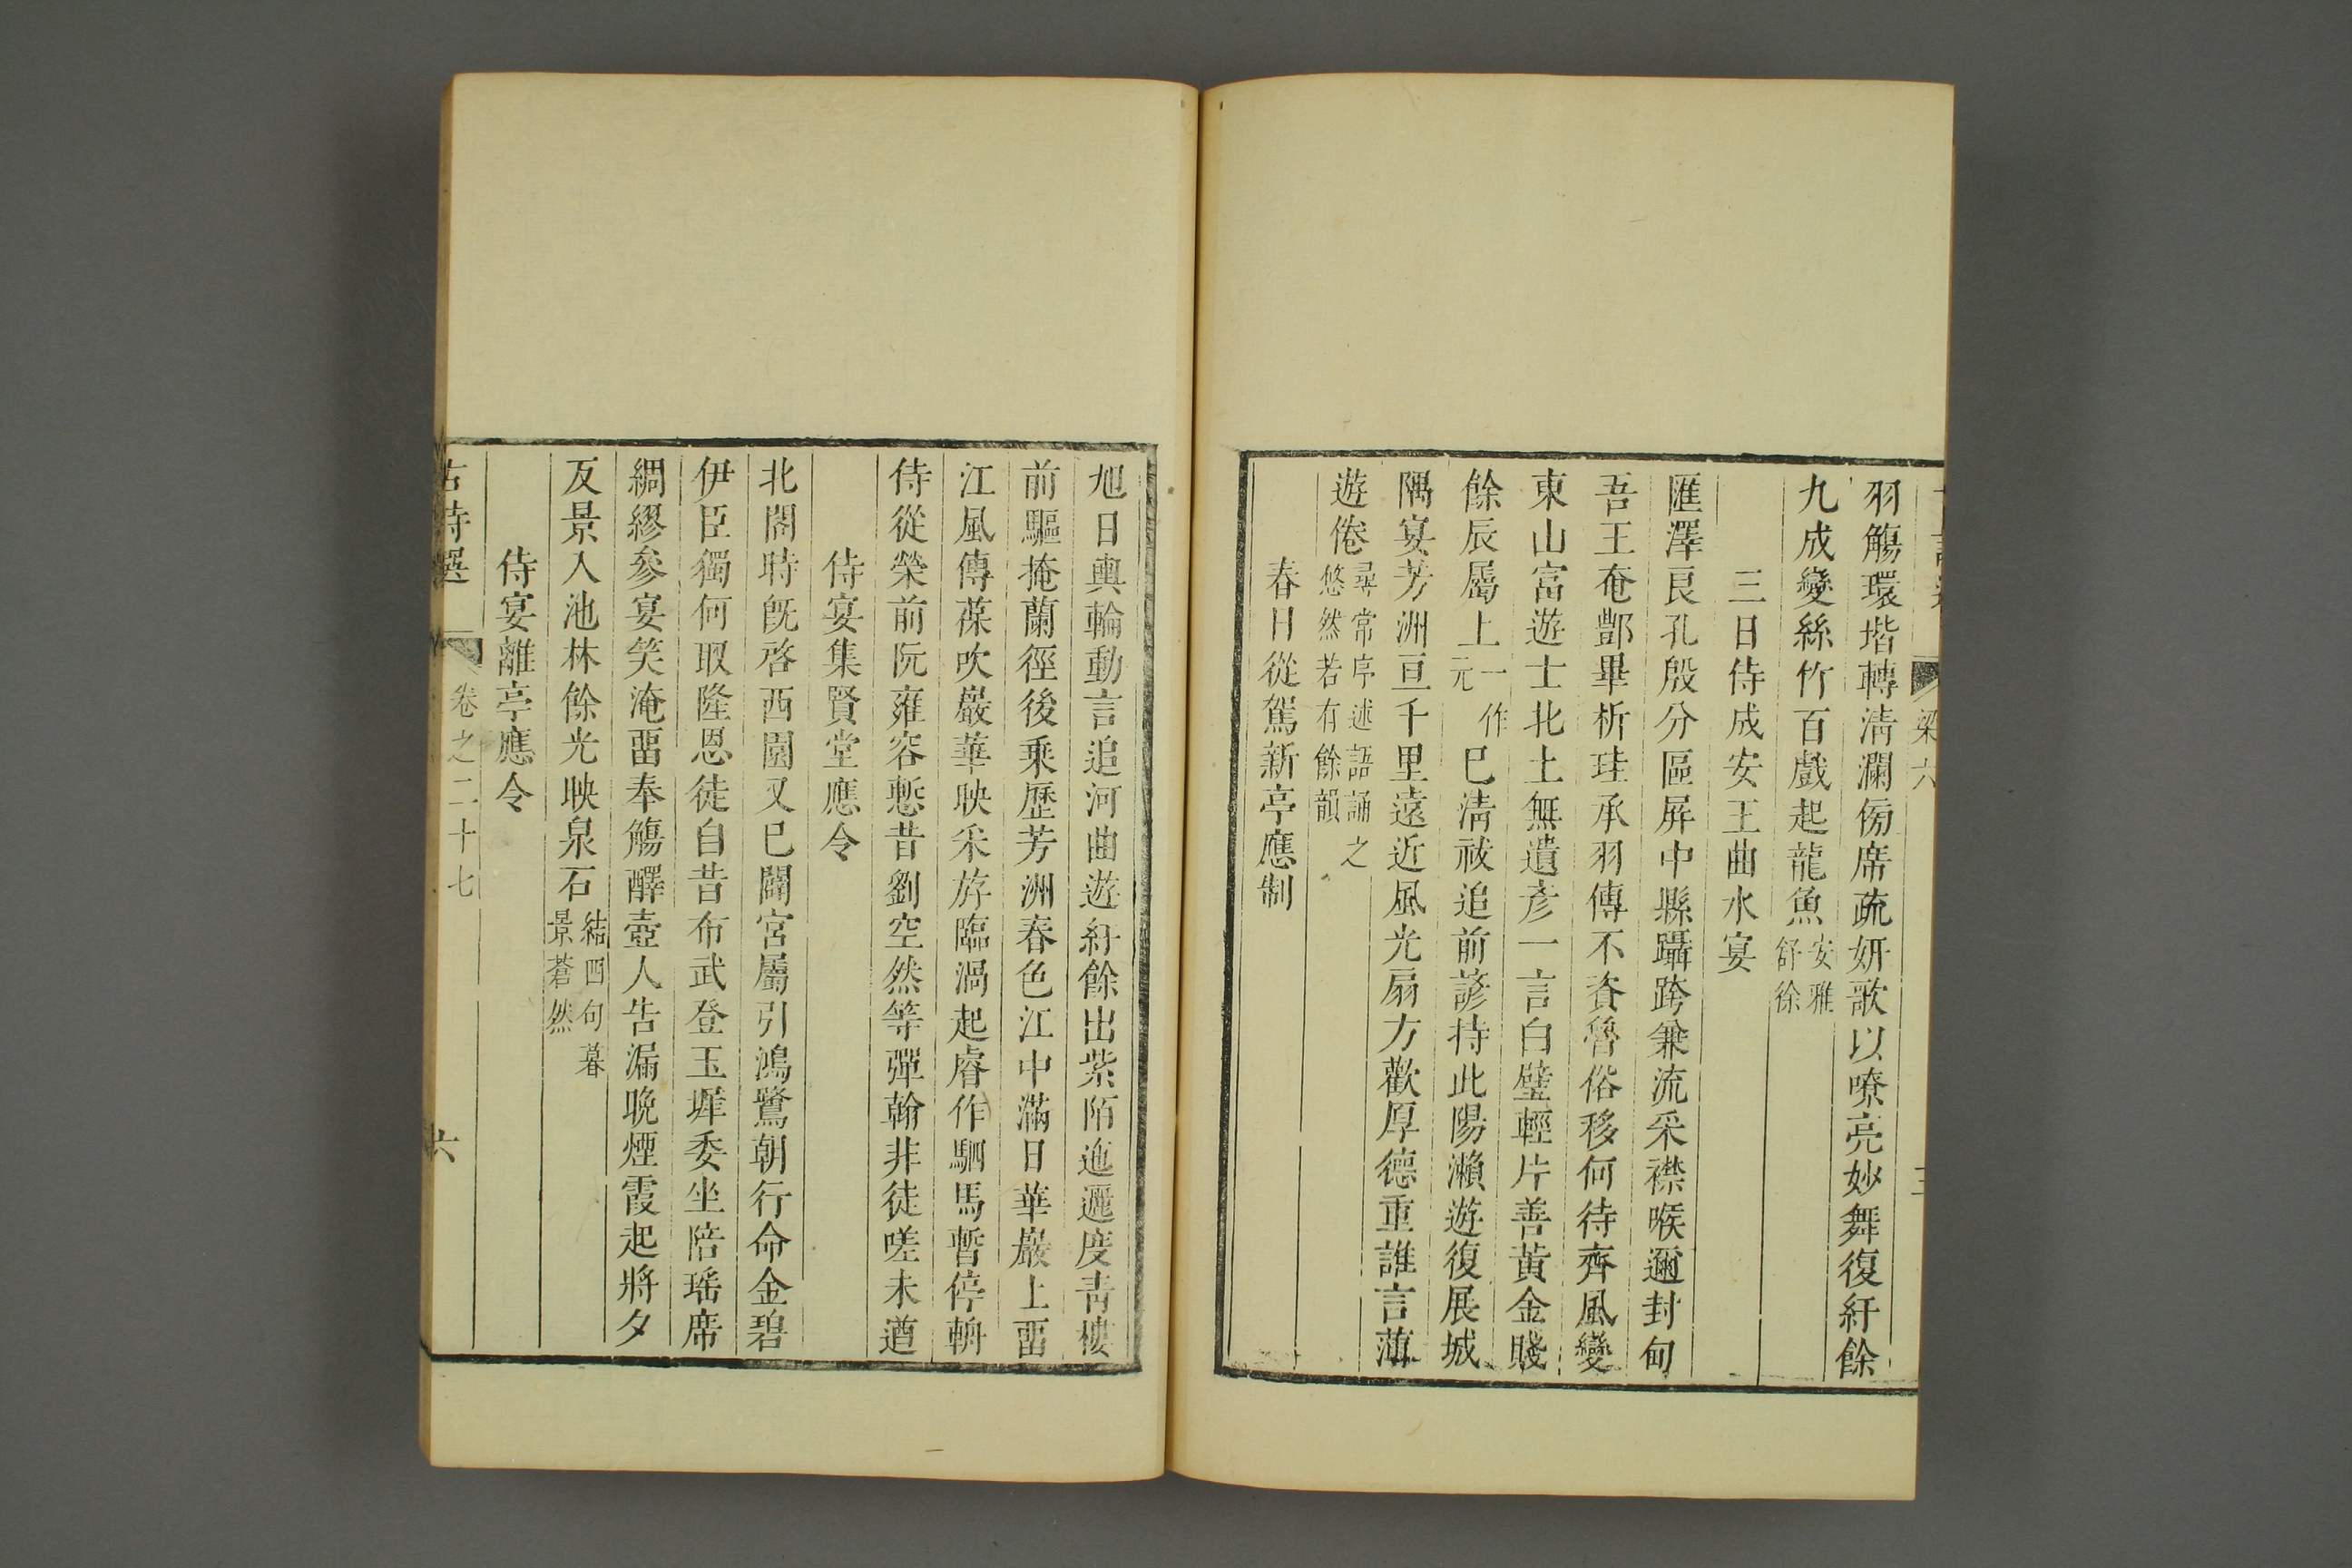 梁六
羽觴環堦轉淸瀾傍席疏妍歌以嘹亮妙舞復紆餘
九成變絲竹百戲起龍魚安雅
舒徐
三日侍成安王曲水宴
匯澤良孔殷分區屏中縣躡跨兼流采襟喉邇封甸
吾王奄酆畢析珪承羽傳不資魯俗移何待齊風變
東山富遊士北土無遺彥一言白璧輕片善黃金賤
餘辰屬上一作
元巳淸祓追前諺持此陽瀨遊復展城
隅宴芳洲亘千里遠近風光扇方歡厚德重誰言薄
遊倦尋常序述語誦之
悠然若有餘韻
春日從駕新亭應制
旭日輿輪動言追河曲遊紆餘出紫陌迤邐度靑樓
前驅掩蘭徑後乘歷芳洲春色江中滿日華巖上畱
江風傳葆吹巖華映采斿臨渦起睿作駟馬暫停輈
侍從榮前阮雍容慙昔劉空然等彈翰非徒嗟未遒
侍宴集賢堂應令
北閣時旣啓西園又巳闢宮屬引鴻鷺朝行命金碧
伊臣獨何取隆恩徒自昔布武登玉墀委坐陪瑤席
綢繆參宴笑淹畱奉觴醳壺人告漏晚煙霞起將夕
反景入池林餘光映泉石結四句暮
景蒼然
侍宴離亭應令
古詩選
卷之二十七
六